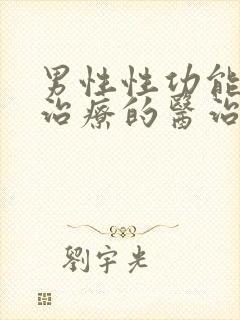 男性性功能
治療的醫治
劉宇光